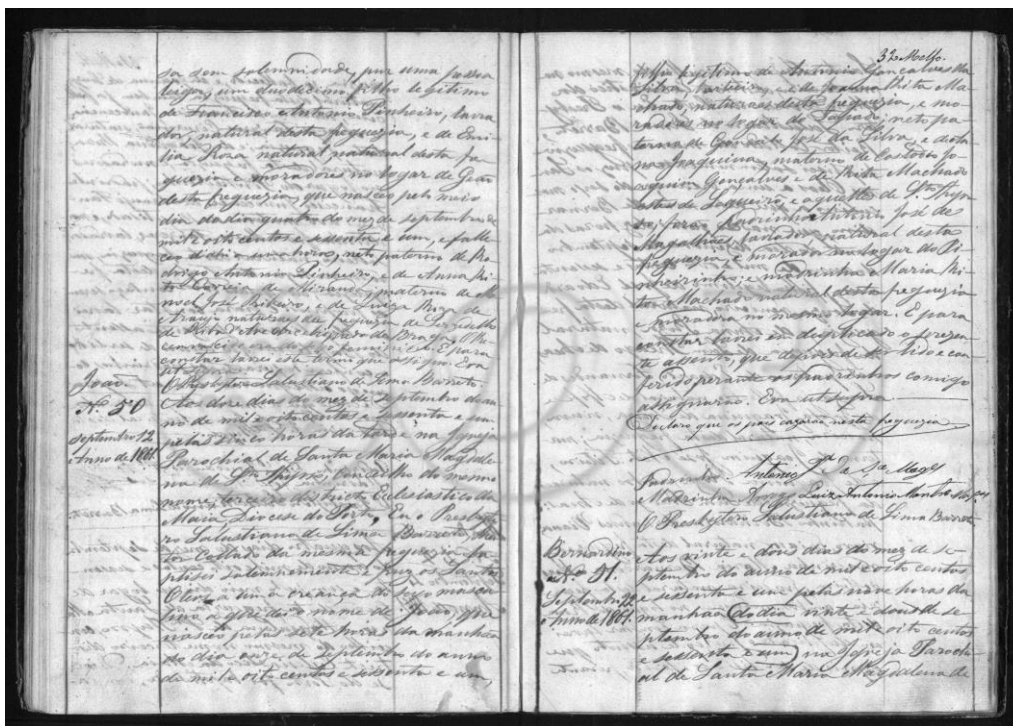 sa sem solemnidade, por uma pessoa
leiga, um duodecimo filho legitimo
de Francisco Antonio Pinheiro, lavra
dor, natural desta freguezia, e de Emi
lia Rosa natural natural desta fre
guezia e moradores no logar de
desta freguezia, que nasceo pelo meio
dia do dia quatro do mez de septembro de
mil e oito centos e sessenta e um, e falle
ceo d'ahi a uma hora, neto paterno de Ro
drigo Antonio Pinheiro, e de Anna Ri
ta Correia de Miranda, materno de Ma
noel José Ribeiro, e de Luiza Rosa de
Araujo naturaes da freguezia de
Arcebispado de Braga,
E para
constar lavrei este termo que assigno. Era
O Presbytero Salustiano de Lima Barreto
João.
Nº 50
Septembro 12
Anno de 1861
Aos doze dias do mez de septembro do an
no de mil e oito centos e sessenta e um
pelas cinco horas da tarde na Igreja
Parochial de Santa Maria Magdale
na de Sto Thyrso, concelho do mesmo
nome, terceiro districto Ecclesiastico da
Maia Diocese do Porto, Eu o Presbyte
ro Salustiano de Lima Barreto, Rei
tor Collado da mesma freguezia ba
ptisei solemnemente e puz os Santos
Oleos a um a creança do sexo mascu
lino a que dei o nome de João, que
nasceo pelas sete horas da manhãa
do dia onze de septembro do anno
de mil e oito centos e sessenta e um,
32
filho legitimo de Antonio Gonçalves da
Silva, e de Joanna Rita Ma
chado, naturaes desta freguezia, e mo
radores no logar do neto pa
terno de Custodio José da Silva, e de
na Joaquina, materno de Custodio Jo
aquim Gonçalves e de Rita Machado
estes de e aquelles de Sto Thyr
so, foi padrinho Antonio José de
Magalhães, natural desta
freguezia, e morador no logar do Pi
nheirinho; e madrinha Maria Ri
ta Machado natural desta freguezia
e moradora no mesmo logar. E para
constar lavrei em duplicado o prezen
te assento, que depois de ser lido e con
ferido perante os padrinhos comigo
assignarão. Era ut supra
Declaro que os pais cazarão nesta freguezia
Padrinho Antonio
Madrinha Luiz Antonio
O Presbytero Salustiano de Lima Barreto
Bernardino
Nº 51.
Septembro 22
Anno de 1861.
Aos vinte e dous dias do mez de se
ptembro do anno de mil e oito centos
e sessenta e um pelas nove horas da
manhãa (do dia vinte e dous de se
ptembro do anno de mil e oito centos
e sessenta e um) na Igreja Parochi
al de Santa Maria Magdalena de